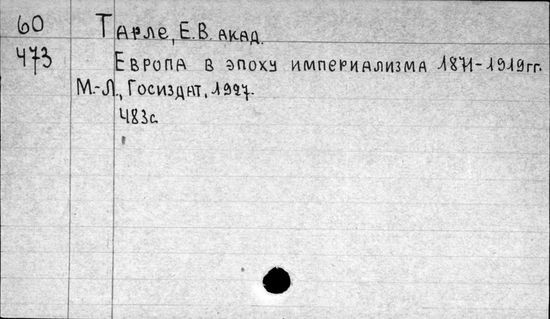 60 Тарле, Е.В. акад.
473 Европа в эпоху империализма 1871-1919гг.
М.-Л., Госиздат, 1927.
483с.